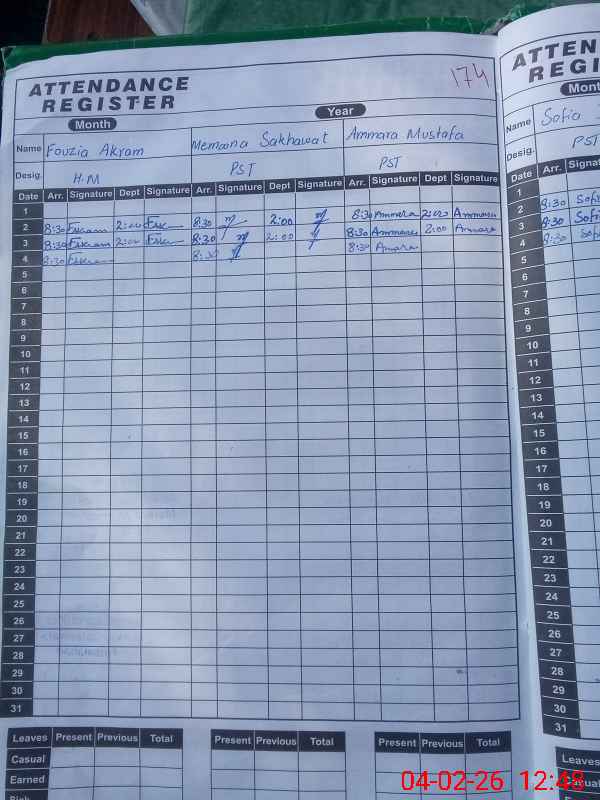 174
ATTENDANCE
REGISTER
Month Year
Name Fouzia Akram Memoona Sakhawat Ammara Mustafa
Desig. H.M PST PST
Date Arr. Signature Dept Signature Arr. Signature Dept Signature Arr. Signature Dept Signature
1
2 8:30 2:00 8:30 2:00 8:30 Ammara 2:00 Ammara
3 8:30 2:00 8:30 2:00 8:30 Ammara 2:00 Ammara
4 8:30 8:30 8:30 Amara
5
6
7
8
9
10
11
12
13
14
15
16
17
18
19
20
21
22
23
24
25
26
27
28
29
30
31
Leaves Present Previous Total Present Previous Total Present Previous Total
Casual
Earned
ATTEN
REGI
Mont
Name Sofia
Desig. PST
Date Arr. Signat
1
2 8:30 Sofi
3 8:30 Sofi
4 8:30 Sofi
5
6
7
8
9
10
11
12
13
14
15
16
17
18
19
20
21
22
23
24
25
26
27
28
29
30
31
Leaves
Casual
04-02-26 12:48